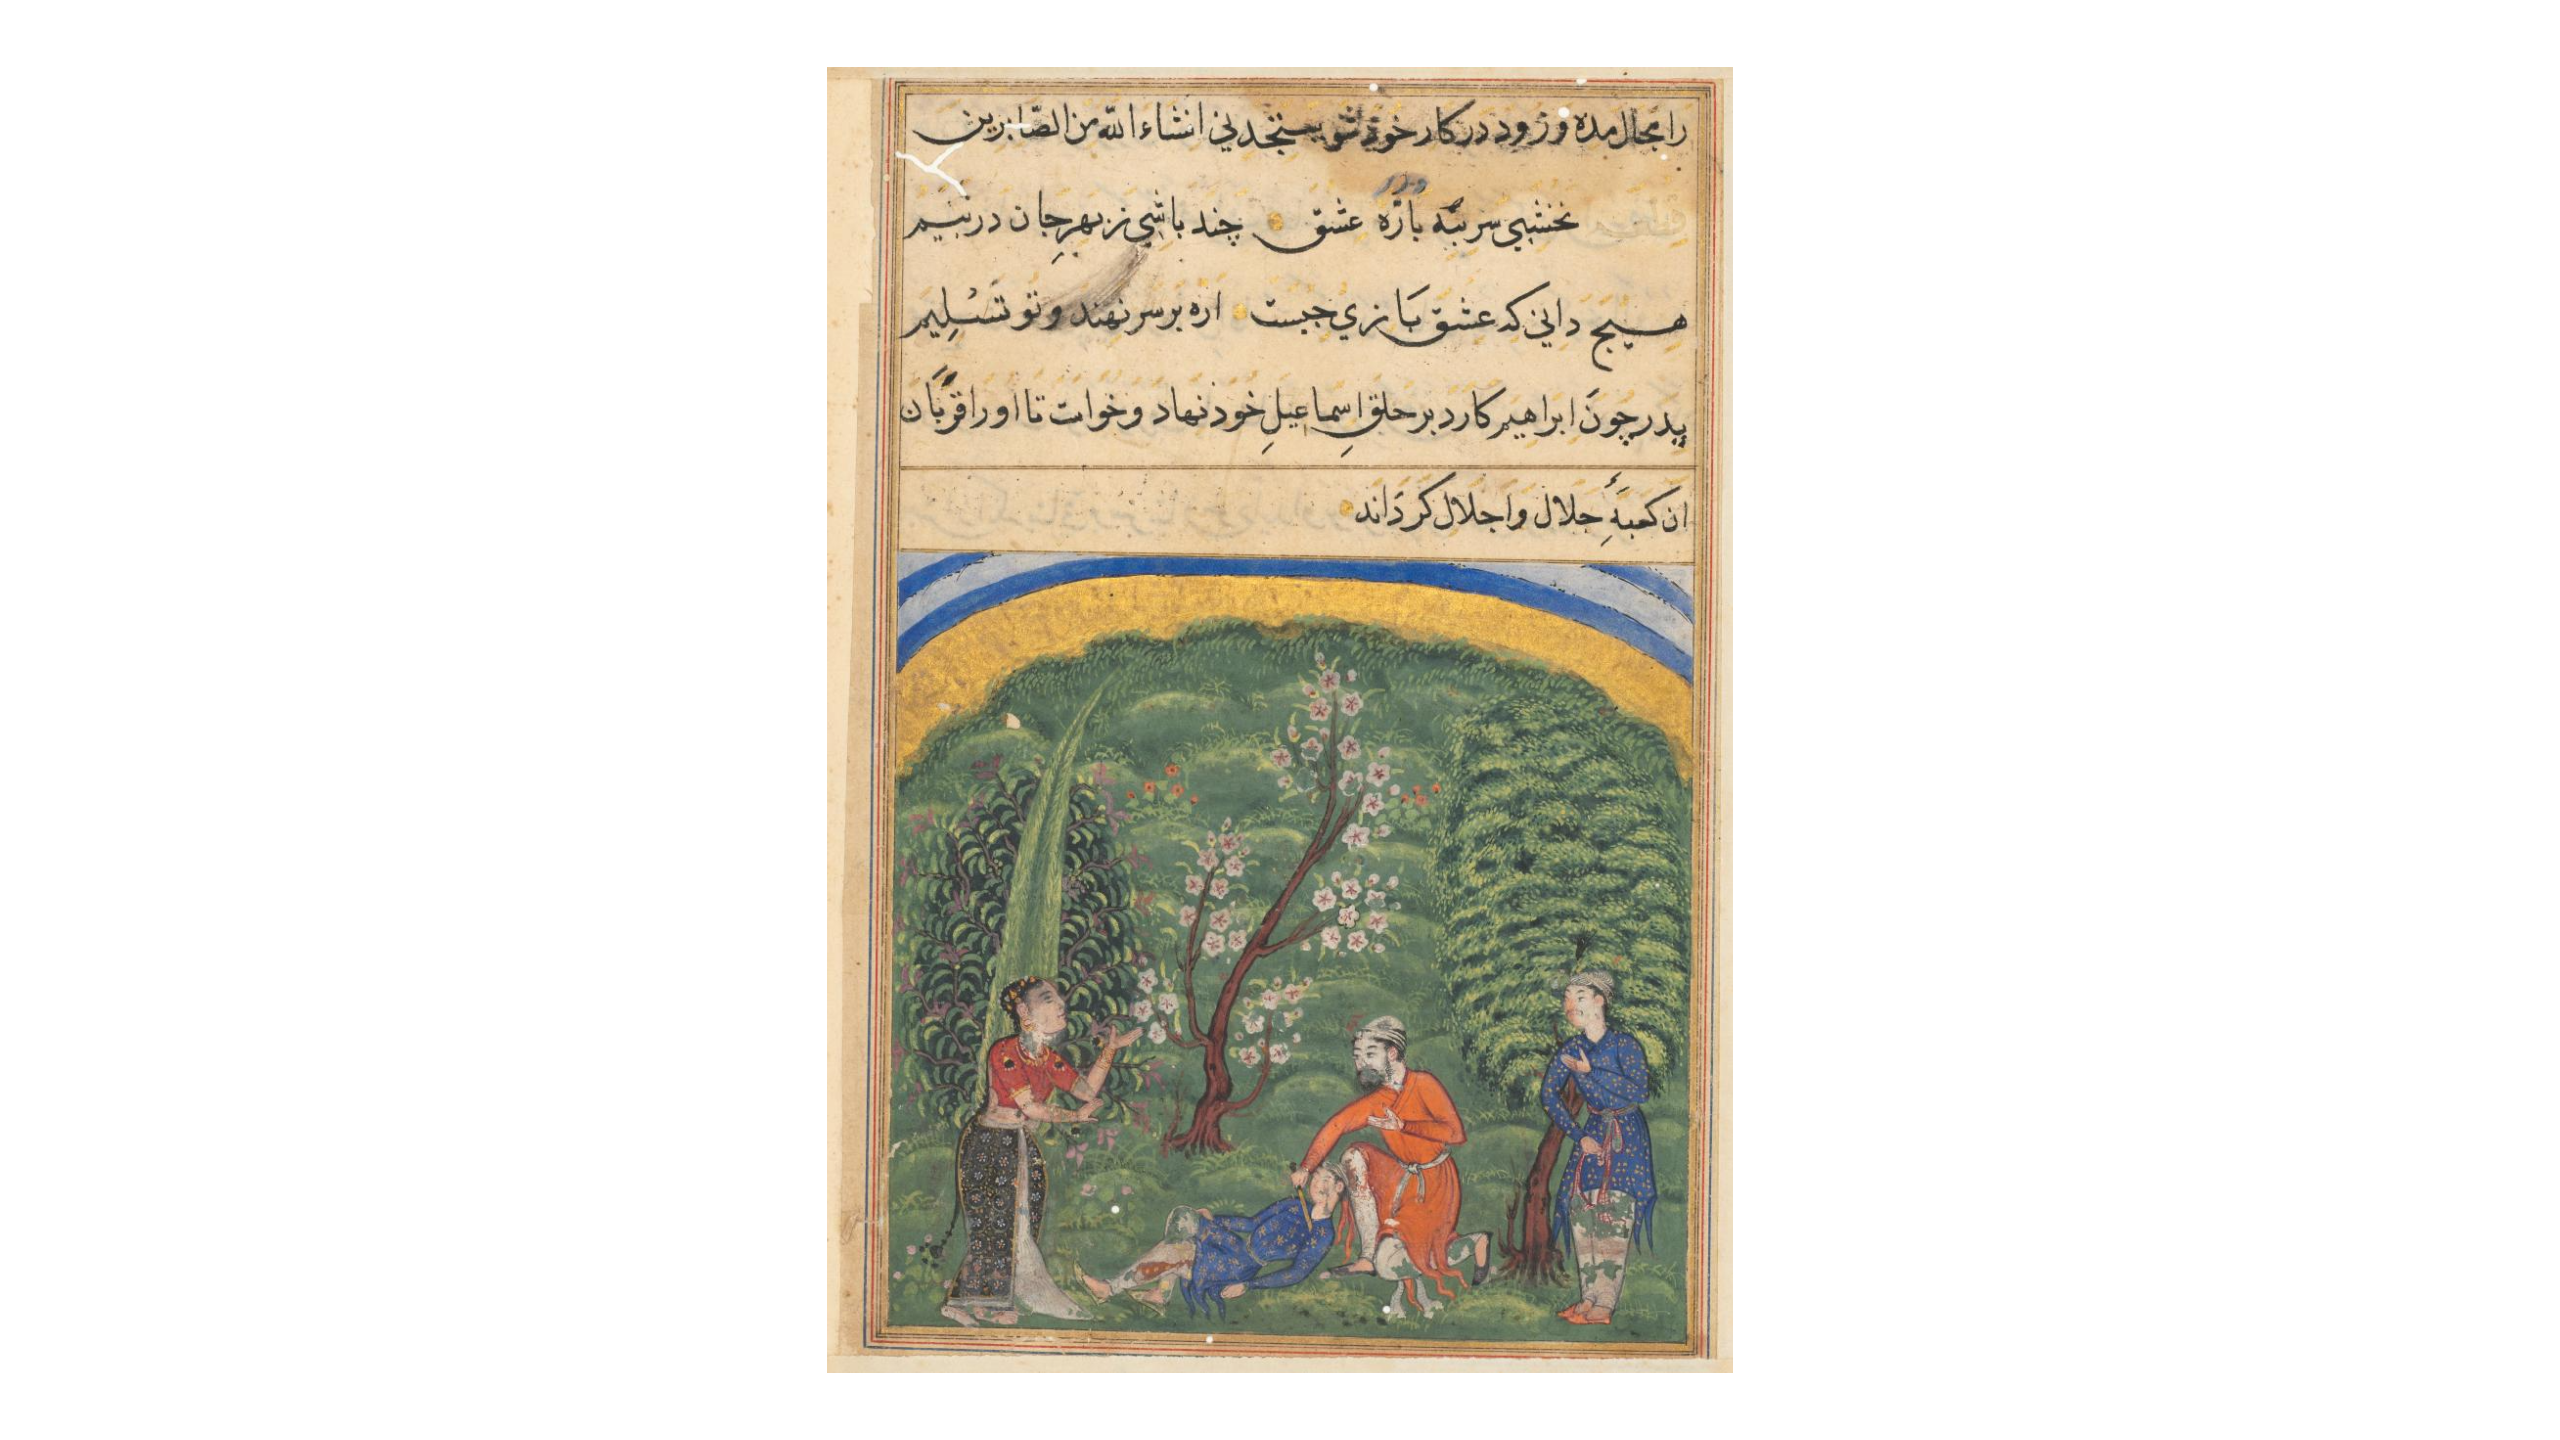 را مجال مده و زود در کار خود شو ستجدني انشاء الله من الصّابرين
نخشبي سر بنه باره عشق چند باشي ز بهرِ جان در بيم
هيج داني که عشق بازي جيست اره بر سر نهند و تو تسْلِيم
پدر چون ابراهيم کارد بر حلقِ اسماعيلِ خود نهاد و خواست تا او را قربان
ان کعبهٔ جلال و اجلال کرداند